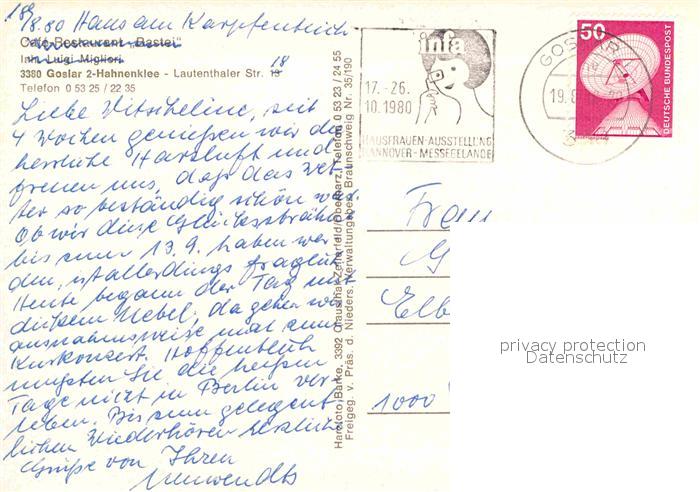 18/8.80 Haus am Karpfenteich
Café-Restaurant „Bastei"
Inh. Luigi Migliori
18
3380 Goslar 2-Hahnenklee - Lautenthaler Str. 13
Telefon 0 53 25 / 22 35
Liebe seit
4 Wochen genießen wir die
herrliche Harzluft und
freuen uns, daß das Wet-
ter so beständig schön war.
Ob wir diese Glückssträhne
bis zum 13.9. haben wer-
den, ist allerdings fraglich.
Heute begann der Tag mit
dickem Nebel, da gehen wir
ausnahmsweise mal zum
Kurkonzert. Hoffentlich
mußten Sie die heißen
Tage nicht in Berlin ver-
leben. Bis zum gelegent-
lichen Wiederhören herzliche
Grüße von Ihren
Harzfoto Barke, 3392 Clausthal-Zellerfeld/Oberharz, Telefon 0 53 23 / 24 55
Freigeg. v. Präs. d. Nieders. Verwaltungsbez. Braunschweig Nr. 35/190
infa
17.-26.
10.1980
HAUSFRAUEN-AUSSTELLUNG
HANNOVER-MESSEGELÄNDE
GOSLAR
19.8.
3
50
DEUTSCHE BUNDESPOST
Frau
G
Elb
1000
privacy protection
Datenschutz